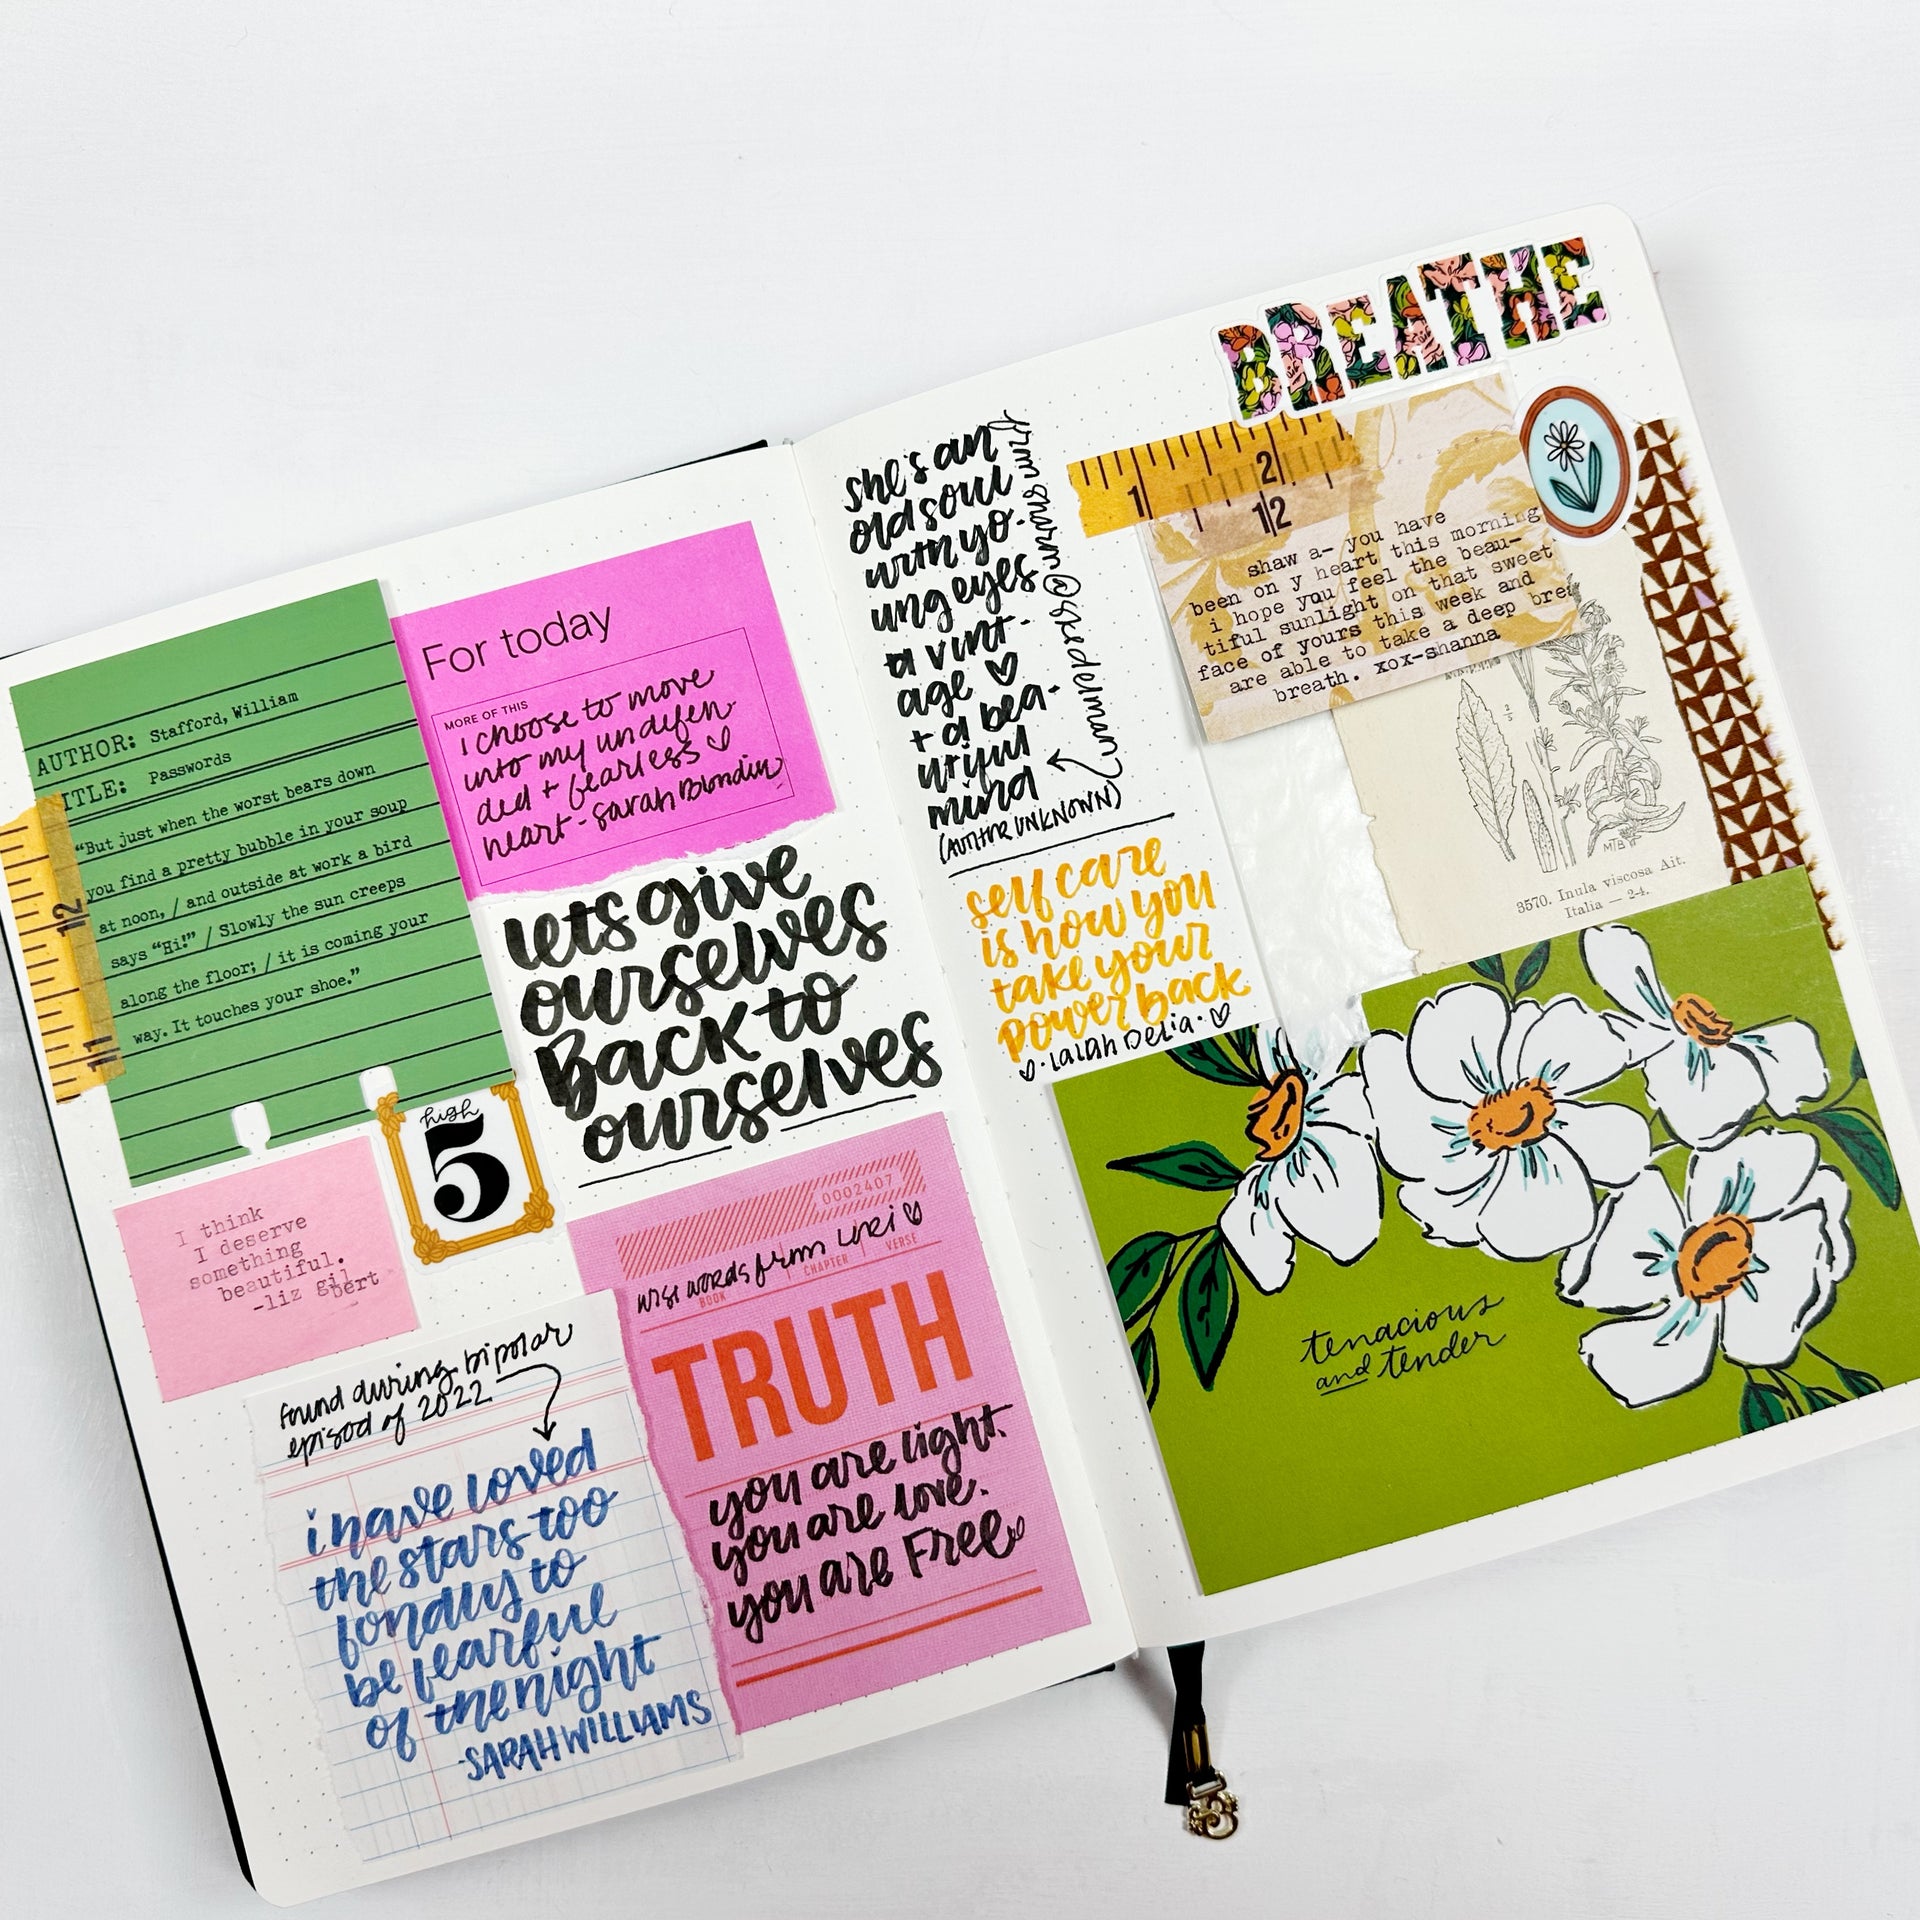 AUTHOR: Stafford, William
TITLE: Passwords
"But just when the worst bears down
you find a pretty bubble in your soup
at noon, / and outside at work a bird
says "Hi!" / Slowly the sun creeps
along the floor; / it is coming your
way. It touches your shoe."
12
11
For today
MORE OF THIS
i choose to move
into my undefen-
ded + fearless
heart - sarah Blondin
lets give
ourselves
Back to
ourselves
high
5
I think
I deserve
something
beautiful.
-liz gilbert
found during bipolar
episod of 2022
i have loved
the stars too
fondly to
be fearful
of the night
-SARAH WILLIAMS
0002407
wise words from Lori
BOOK
CHAPTER
VERSE
TRUTH
you are light.
you are love.
you are Free
she's an
old soul
with yo-
ung eyes
a vint-
age
+ a bea-
utiful
mind
(AUTHOR UNKNOWN)
from shawna @
self care
is how you
take your
power back
·Lalah Delia·
BREATHE
1
2
12
shaw a- you have
been on y heart this morning
i hope you feel the beau-
tiful sunlight on that sweet
face of yours this week and
are able to take a deep brea
breath. xox-shanna
2/5
MTB
3570. Inula viscosa Ait.
Italia — 2-4.
tenacious
and tender